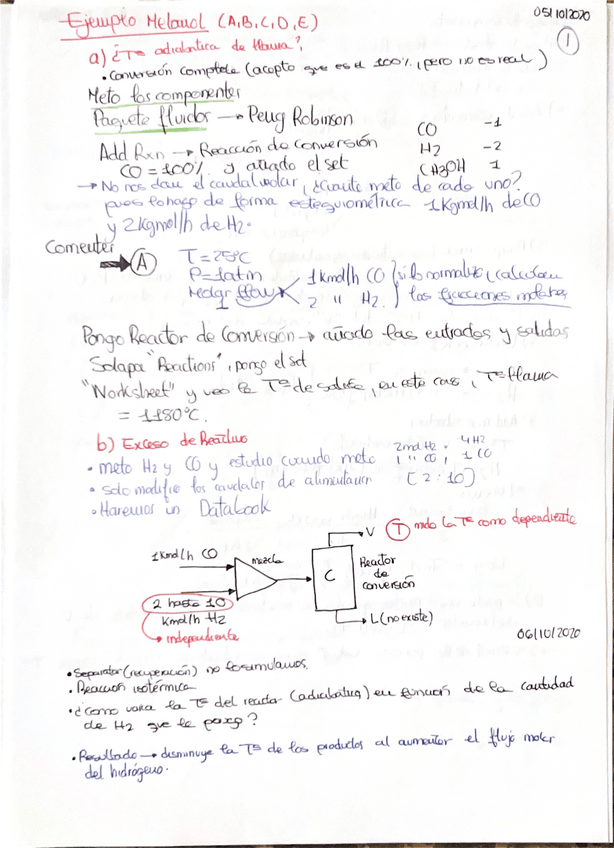 05/10/2020
1
Ejemplo Metanol (A,B,C,D,E)
a) ¿Tª adiabática de llama?
• Conversión completa (acepto que es el 100%, pero no es real)
Meto los componentes
Paquete fluidos → Peng Robinson
Add Rxn → Reacción de conversión
CO = 100% y añado el set
CO -1
H2 -2
CH3OH 1
→ No nos dan el caudal molar, ¿cuánto meto de cada uno?
pues lo hago de forma estequiométrica 1Kgmol/h de CO
y 2Kgmol/h de H2.
Comenter
A
T = 25ºC
P = 1atm
Molar flow
1
1 kmol/h CO
2 " H2
si lo normalizo, calculan
las fracciones molares
Pongo Reactor de Conversión → añado las entradas y salidas
Solapa "Reactions", pongo el set
"Worksheet" y veo la Tª de salida, en este caso, Tª flama
= 1180ºC.
b) Exceso de Reactivo
• meto H2 y CO y estudio cuando meto
2mol H2 : 4H2
" CO, 1 CO
• solo modifico los caudales de alimentación
[2:10]
• Haremos un Databook
V
T
mido la Tª como dependiente
1 Kmol/h CO
mezcla
C
Reactor
de
conversión
2 hasta 10
Kmol/h H2
→ independiente
L (no existe)
06/10/2020
• Separator (recuperación) no lo simulamos.
• Reacción isotérmica
• ¿como varía la Tª del reactor (adiabático) en función de la cantidad
de H2 que le pongo?
• Resultado → disminuye la Tª de los productos al aumentar el flujo molar
del hidrógeno.